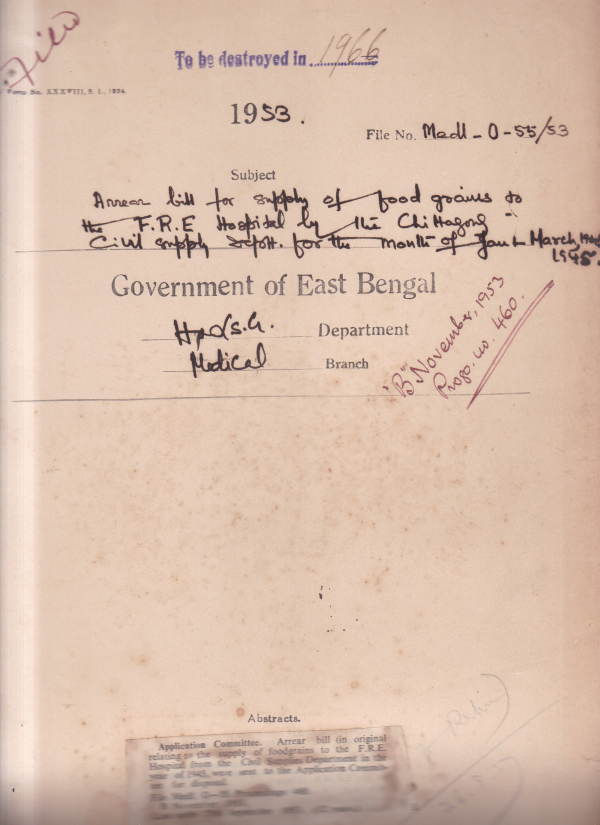 Filed
To be destroyed in 1966
Form No. XXXVIII, S. I., 1934.
1953.
File No. Medl - O - 55/53
Subject
Arrear bill for supply of food grains to
the F.R.E Hospital by the Chittagong
Civil supply Deptt. for the month of Jan & March,
1945.
Government of East Bengal
Department
Medical Branch
"B" November, 1953
Progs. no. 460.
Abstracts.
Application Committee. Arrear bill (in original
relating to the supply of foodgrains to the F.R.E.
Hospital from the Civil Supplies Department in the
year of 1945, were sent to the Application Commit-
tee for disposal.